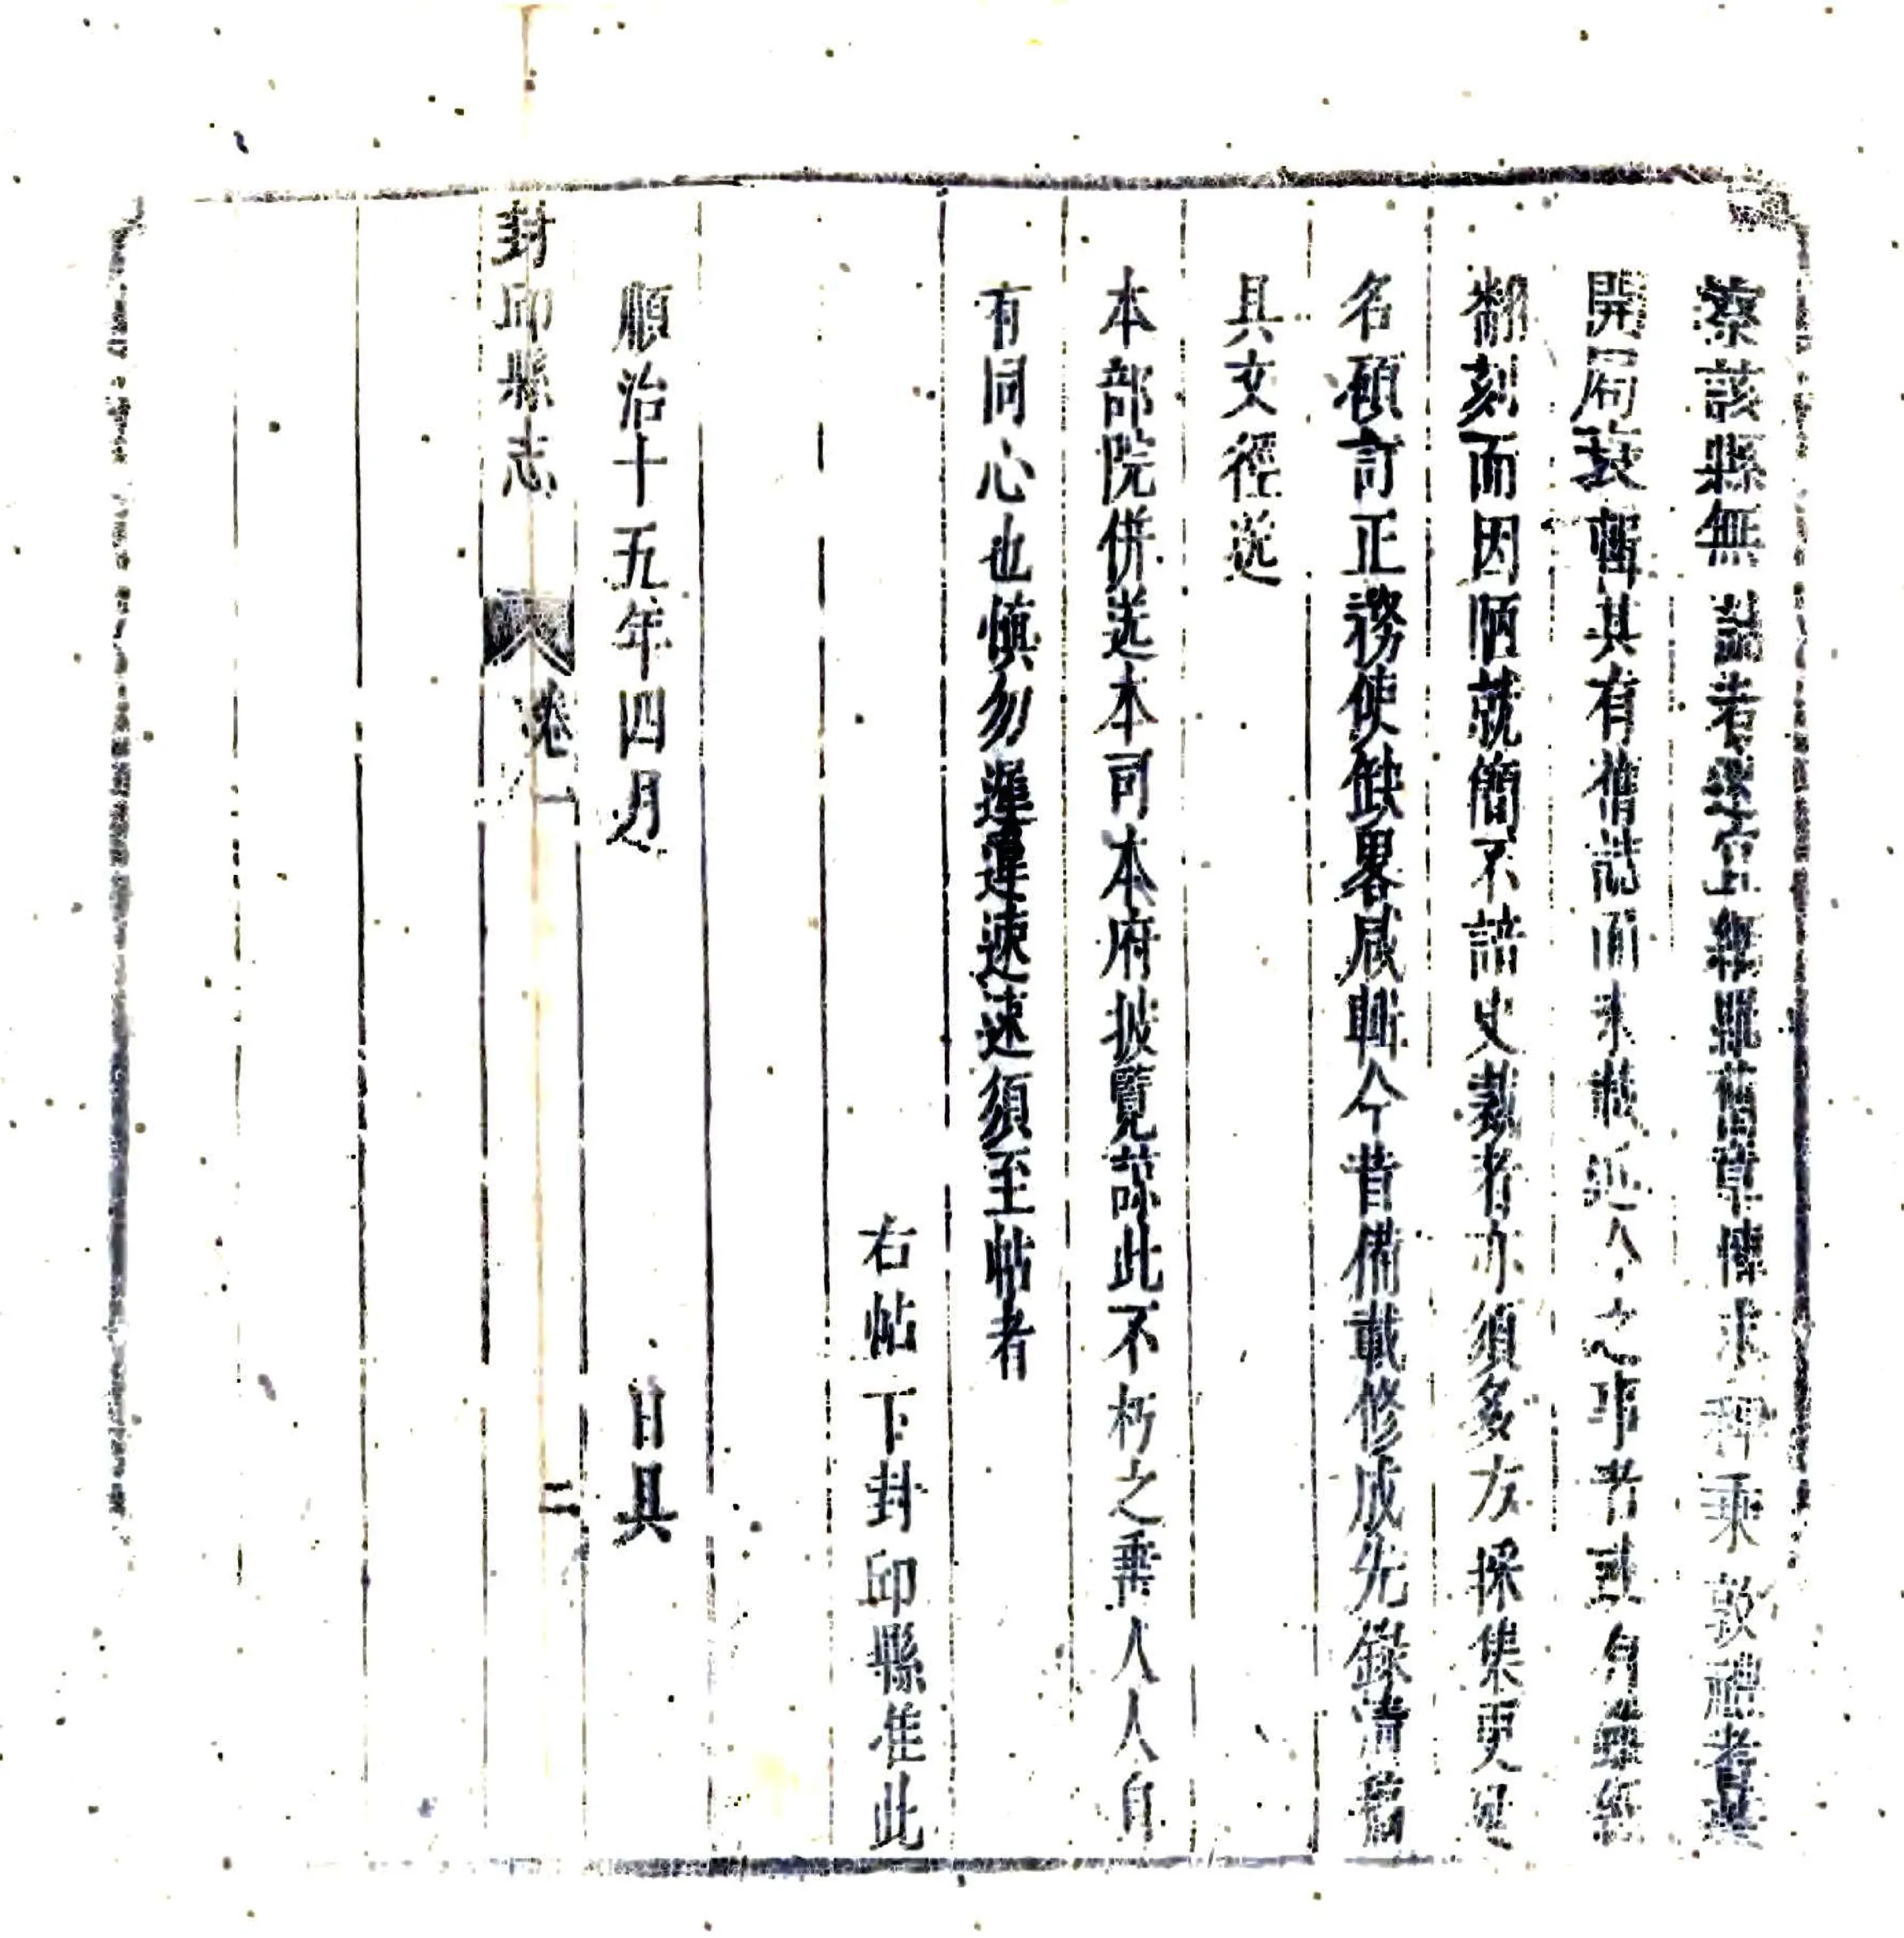 察該縣無誌者速宜網羅舊章博求稗乘敦禮耆
開局裒輯其有舊誌而未載近今之事者或有雖經
翻刻而因陋就簡不諳史裁者亦須多方採集更
名碩訂正務使缺畧咸輯今昔備載修成先錄清舊
具文徑送
本部院併送本司本府披覽諒此不朽之乘人人自
有同心也慎勿遲遲速速須至帖者
右帖下封邱縣准此
順治十五年四月
日具
封邱縣志
卷一
二